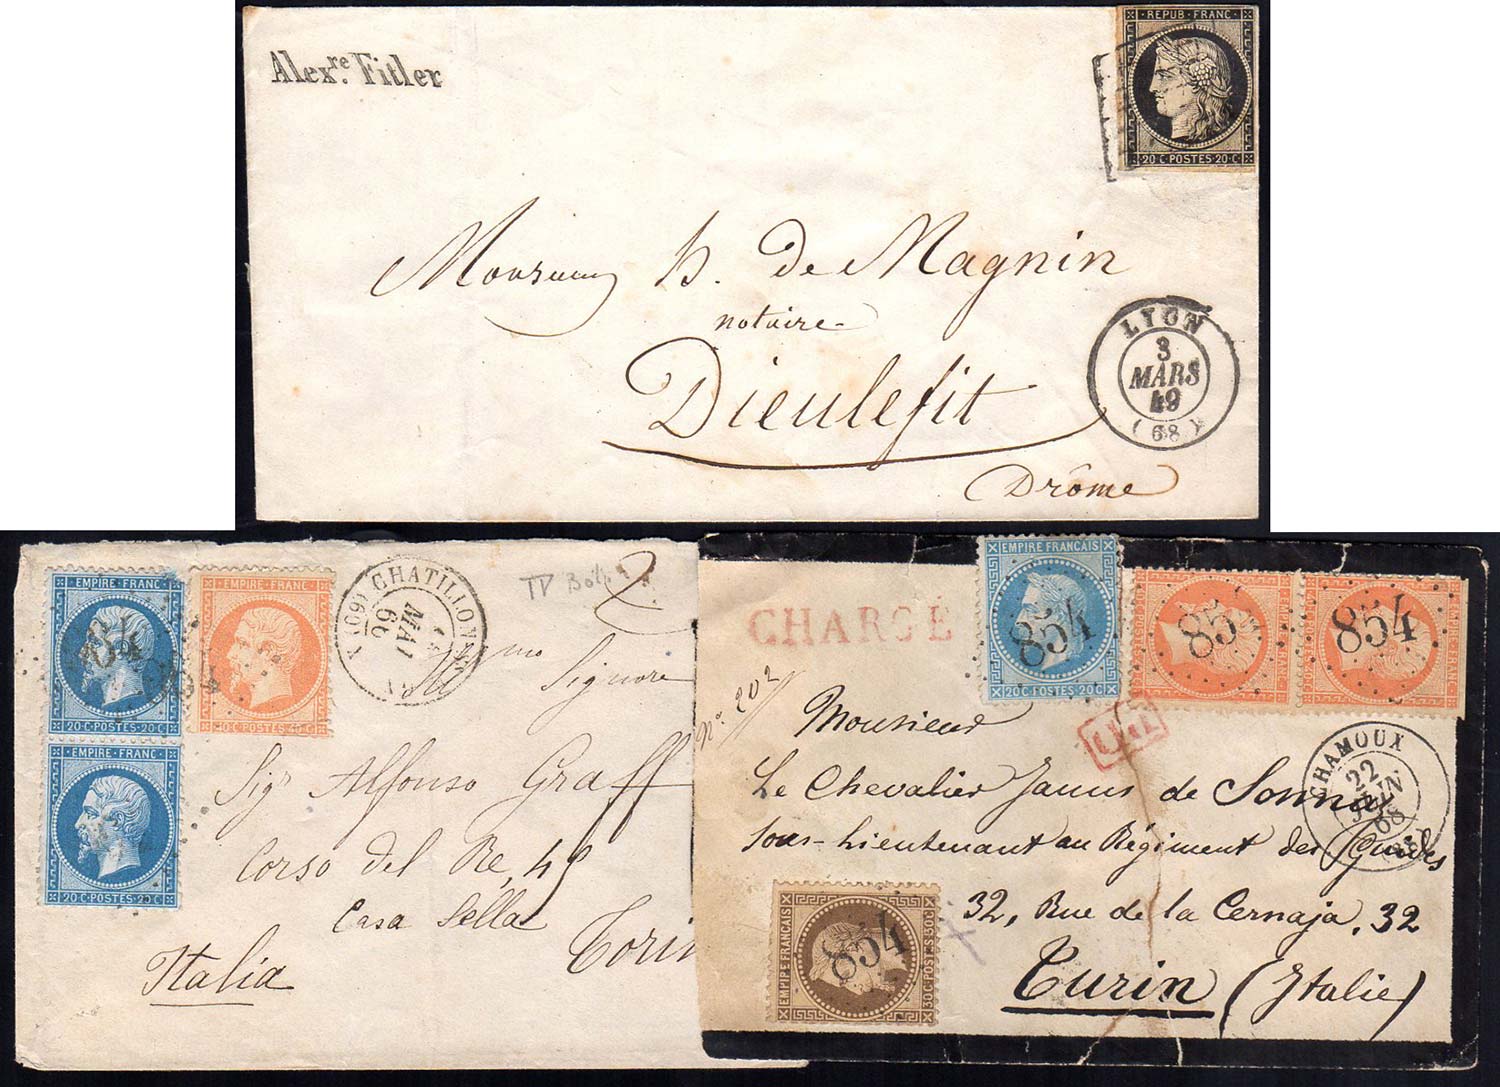 Alex.re Fitler
REPUB·FRANC·
20·C·POSTES·20·C
Monsieur H. de Magnin
notaire
Dieulefit
Drôme
LYON
3
MARS
49
(68)
EMPIRE·FRANC·
20·C·POSTES·20·C
EMPIRE·FRANC·
40·C·POSTES·40·C
EMPIRE·FRANC·
20·C·POSTES·20·C
MAI
66
(60)
2
mo Signore
Sigr Alfonso Graff
Corso del Re, 49
Casa Sella
Torin
Italia
CHARGÉ
No 202
EMPIRE FRANÇAIS
20C POSTES 20C
854
85
854
Monsieur
Le Chevalier Janus de Sonna
sous-Lieutenant au Régiment des Guides
32, Rue de la Cernaja, 32
Turin (Italie)
CHAMOUX
22
JUIN
68
EMPIRE FRANÇAIS
30C POSTES 30C
854